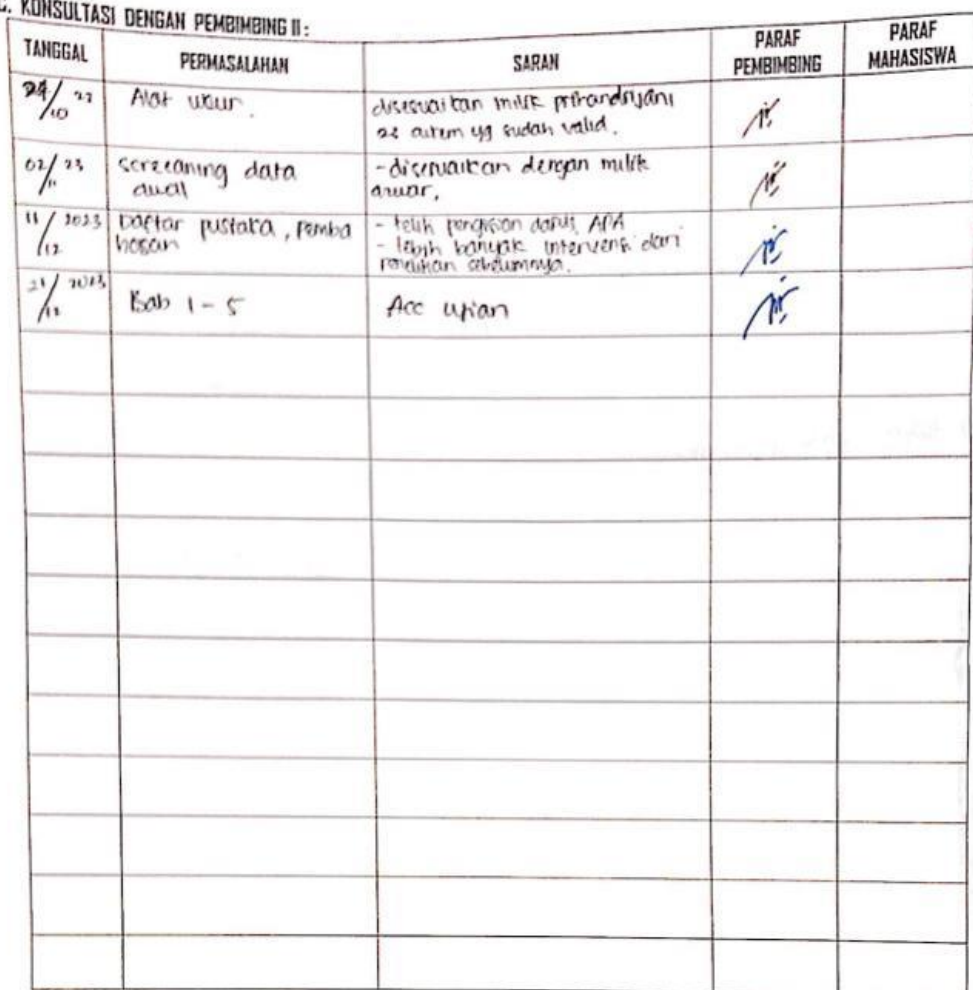 KONSULTASI DENGAN PEMBIMBING II:
TANGGAL PERMASALAHAN SARAN PARAF PEMBIMBING PARAF MAHASISWA
24/10 23 Alat ukur. disesuaikan milik
23 aitem yg sudah valid.
02/11 23 screeaning data awal
- disesuaikan dengan milik anwar.
11/12 2023 Daftar pustaka, pemba
hasan
- telih dapus, APA
- lebih banyak intervensi dari
sebelumnya.
21/12 2023 Bab 1 - 5 Acc ujian